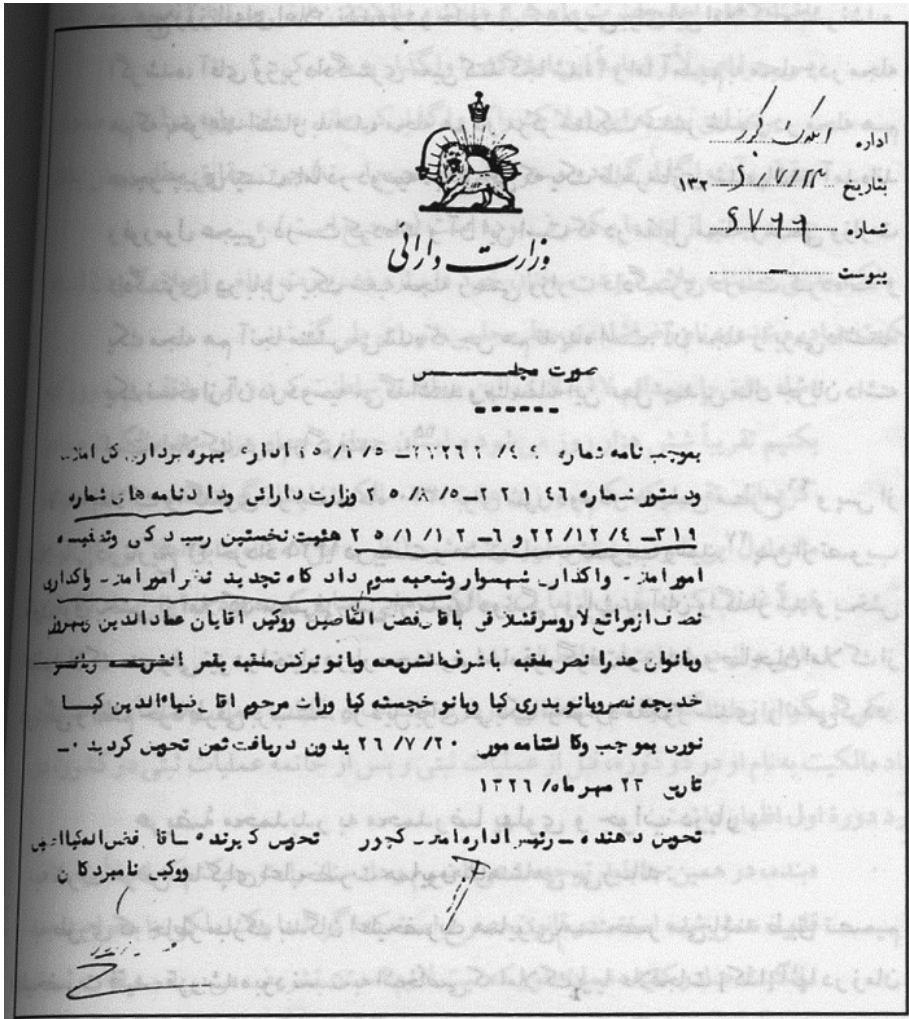 اداره املاک کجور
بتاریخ ۱۳۲۶/۷/۲۳
شماره ۶۷۶۶
پیوست —
وزارت دارائی
صورت مجلس
بموجب نامه شماره اداره بهره برداری کل املاک
ودستور شماره ۲۰۱۴۶ـ ۲۵/۸/۵ وزارت دارائی ودادنامه های شماره
۳۱۹ـ ۲۲/۱۲/۴ هیئت نخستین رسیدگی وتصفیه
امور املاک واگذاری شهسوار وشعبه سوم دادگاه تجدید نظر امور املاک واگذاری
نصف ازمراتع لاروسرقشلاقی باقای فضل الله کیا اصیل ووکیل اقایان عمادالدین بهروز
وبانوان عذرا نصر ملقبه باشرف الشریعه وبانو نرگس ملقبه بفخر الشریعه
خدیجه نصروبانو بدری کیا وبانو خجسته کیا وراث مرحوم اقا ضیاءالدین کیا
نوری بموجب وکالتنامه مورخ ۲۶/۷/۲۰ بدون دریافت ثمن تحویل گردید ۰ـ
تاریخ ۲۳ مهرماه ۱۳۲۶
تحویل دهنده ـ رئیس اداره املاک کجور
تحویل گیرنده ـ اقای فضل اله کیا اصیل
ووکیل نامبردگان